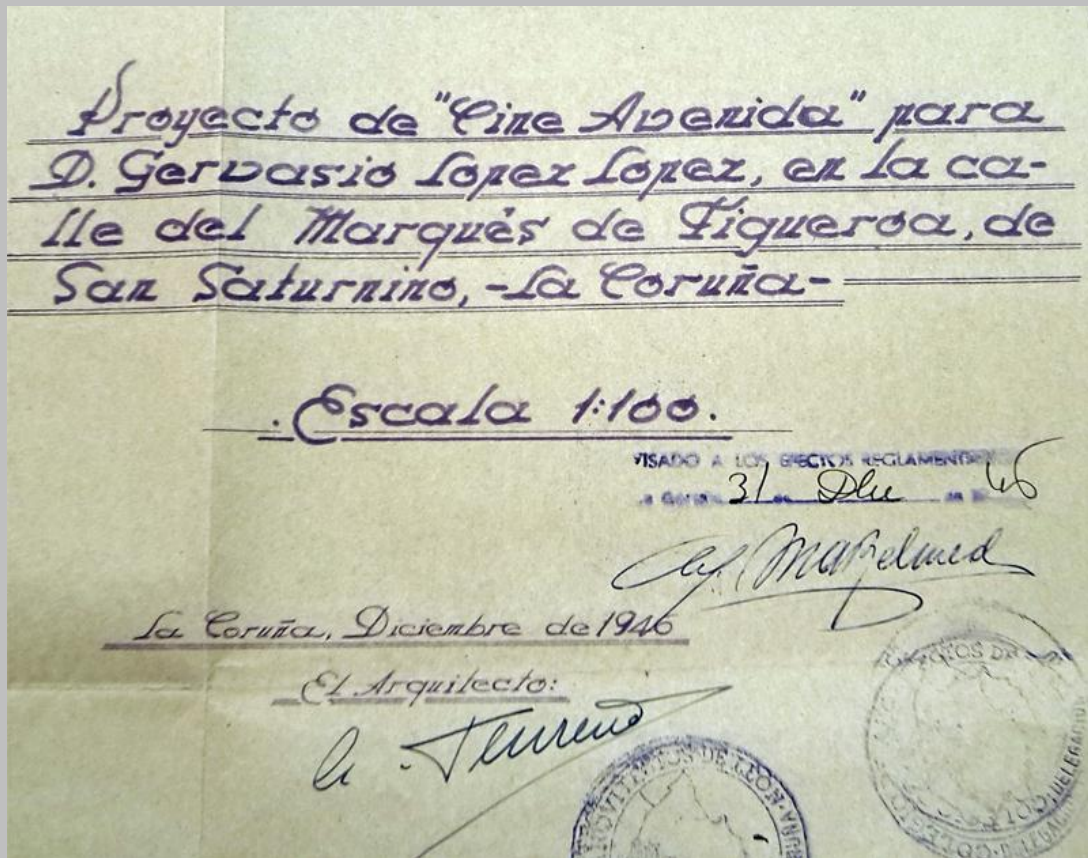 Proyecto de "Cine Avenida" para
D. Gervasio Lopez Lopez, en la ca-
lle del Marqués de Figueroa, de
San Saturnino, -La Coruña-
. Escala 1:100.
VISADO A LOS EFECTOS REGLAMENTARIOS
31 de Dbe de 46
La Coruña, Diciembre de 1946
El Arquitecto:
A. Tenreiro
ARQUITECTOS DE LEÓN